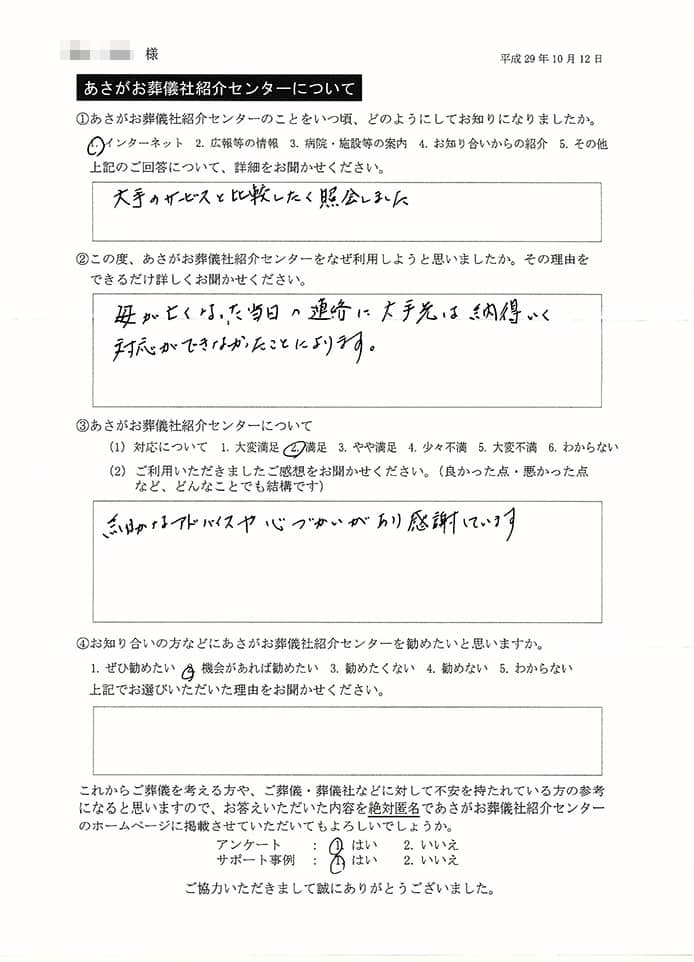 様
平成29年10月12日
あさがお葬儀社紹介センターについて
①あさがお葬儀社紹介センターのことをいつ頃、どのようにしてお知りになりましたか。
1. インターネット 2. 広報等の情報 3. 病院・施設等の案内 4. お知り合いからの紹介 5. その他
上記のご回答について、詳細をお聞かせください。
大手のサービスと比較したく照会しました
②この度、あさがお葬儀社紹介センターをなぜ利用しようと思いましたか。その理由を
できるだけ詳しくお聞かせください。
母が亡くなった当日の連絡に大手先は納得いく
対応ができなかったことによります。
③あさがお葬儀社紹介センターについて
(1) 対応について 1. 大変満足 2. 満足 3. やや満足 4. 少々不満 5. 大変不満 6. わからない
(2) ご利用いただきましたご感想をお聞かせください。(良かった点・悪かった点
など、どんなことでも結構です)
細かなアドバイスや心づかいがあり感謝しています
④お知り合いの方などにあさがお葬儀社紹介センターを勧めたいと思いますか。
1. ぜひ勧めたい 2. 機会があれば勧めたい 3. 勧めたくない 4. 勧めない 5. わからない
上記でお選びいただいた理由をお聞かせください。
これからご葬儀を考える方や、ご葬儀・葬儀社などに対して不安を持たれている方の参考
になると思いますので、お答えいただいた内容を絶対匿名であさがお葬儀社紹介センター
のホームページに掲載させていただいてもよろしいでしょうか。
アンケート : 1. はい 2. いいえ
サポート事例 : 1. はい 2. いいえ
ご協力いただきまして誠にありがとうございました。